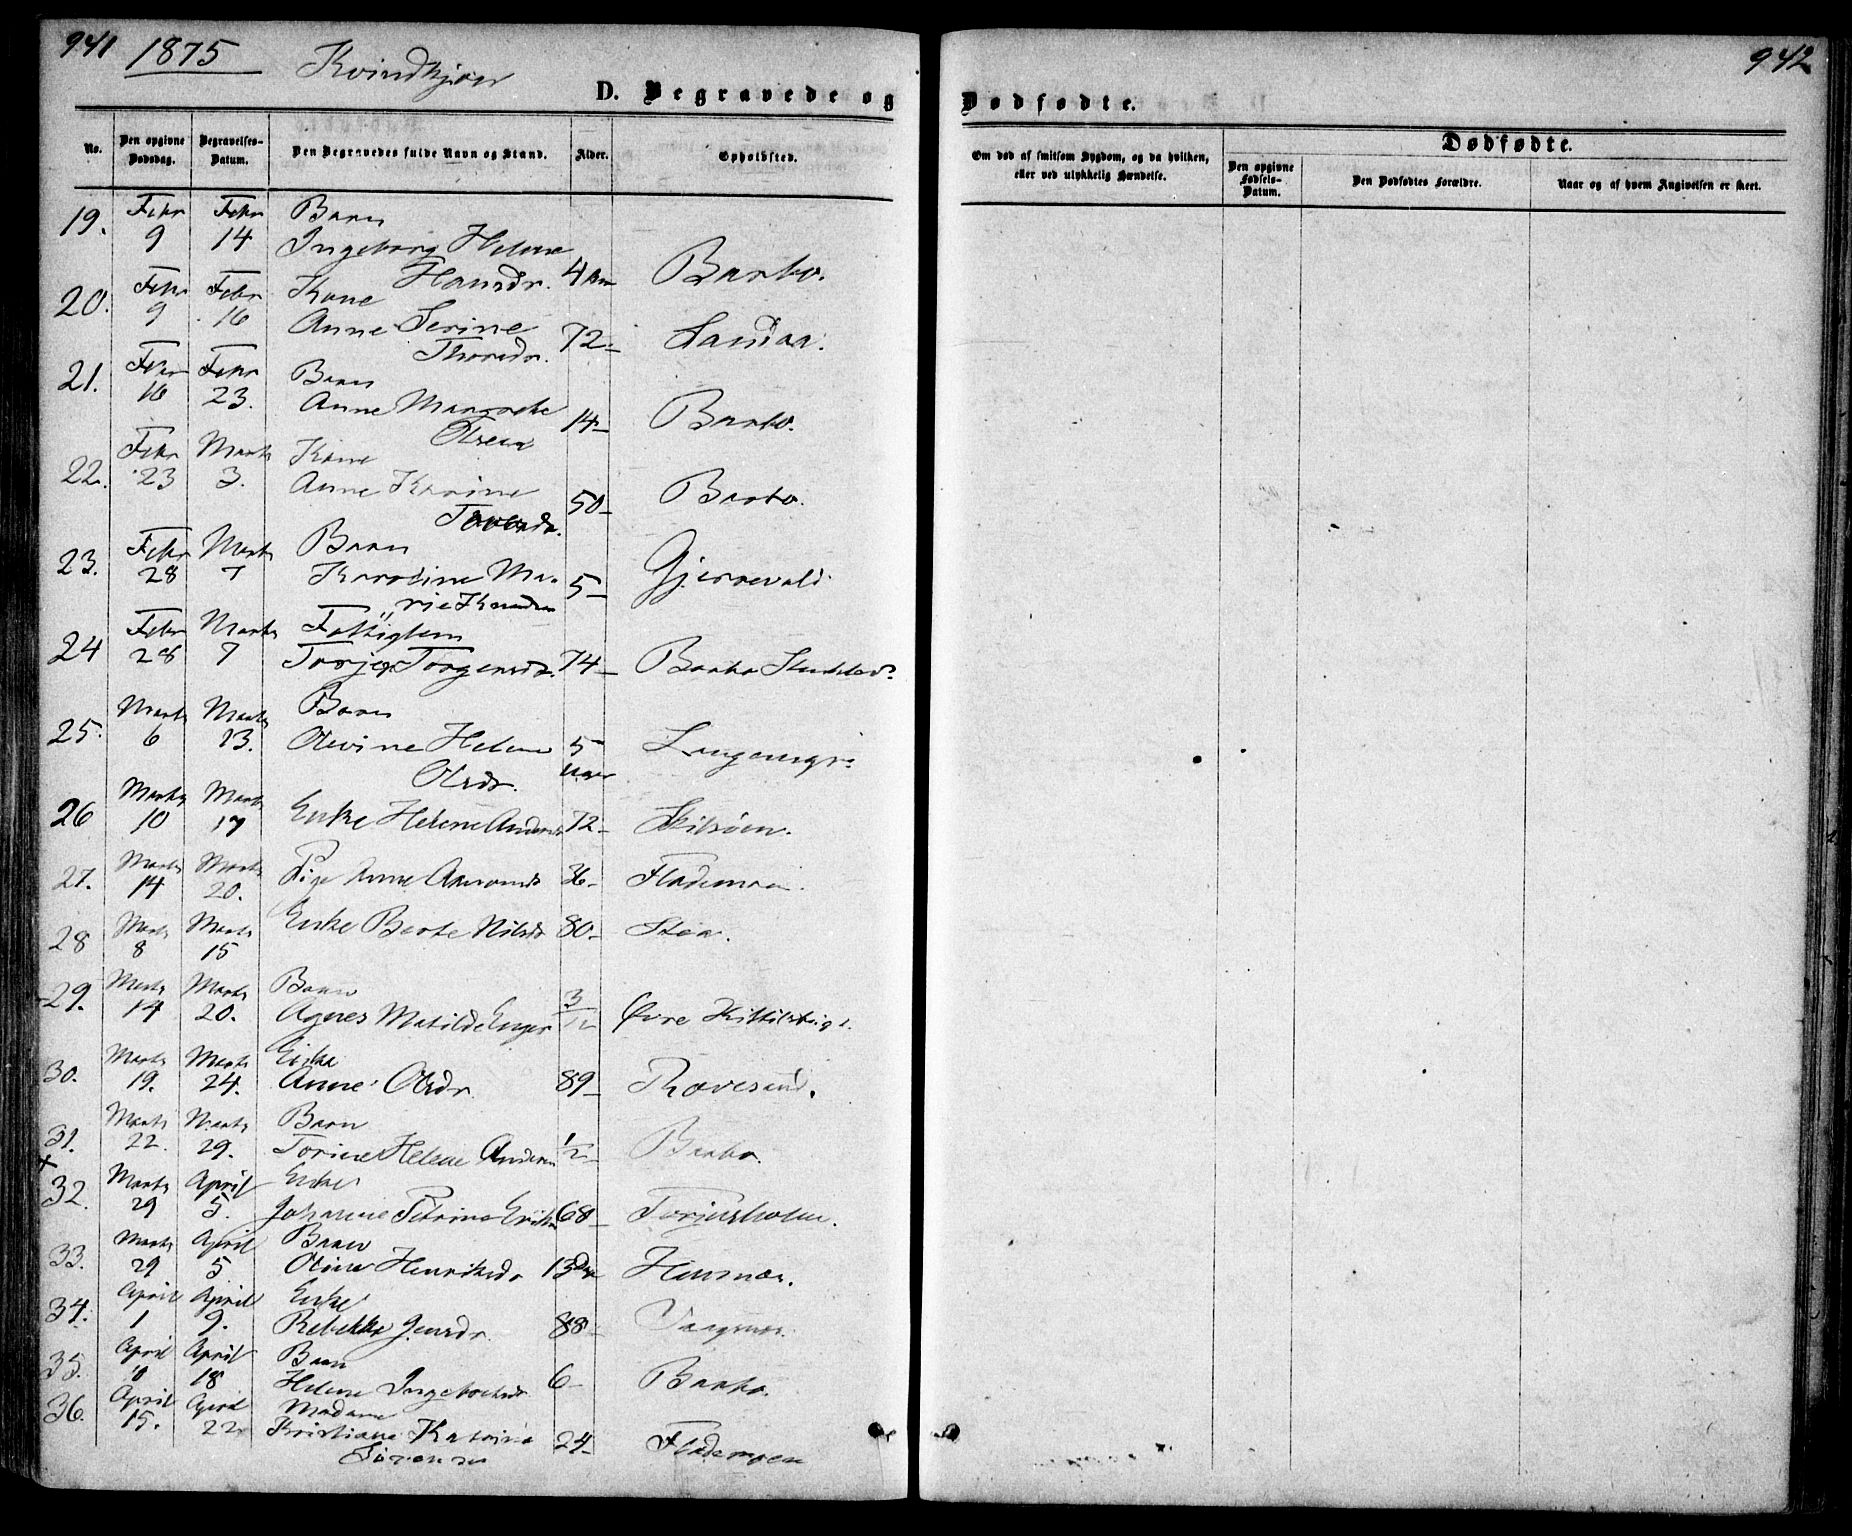 941 1875 Kvindkjøn 942
D. Begravede og Dødfødte.
No. Den opgivne Dødsdag. Begravelses-Datum. Den Begravedes fulde Navn og Stand. Alder. Opholdssted.
Om død af smitsom Sygdom, og da hvilken, eller ved ulykkelig Hændelse.
Dødfødte.
Den opgivne Fødsels-Datum. Den Dødfødtes Forældre. Naar og af hvem Angivelsen er skeet.
19. Febr 9 Febr 14 Barn
Ingeborg Helene
Hansdr. 4 Barbo.
20. Febr 9 Febr 16 Kone
Anne Serine
Thorsdr. 72 Sandaa.
21. Febr 16 Febr 23. Barn
Anne Margrete
Olsen 14 Barbo.
22. Febr 23 Marts 3. Kone
Anne Karine
50 Barbo.
23. Febr 28 Marts 7 Barn
Karoline Ma-
rie Knudsen 5 Gjervold
24 Febr 28 Marts 7 Fattiglem
Torjer Torgersdr. 74 Barbo
25. Marts 6 Marts 13. Barn
Olevine Helene
Olsdr. 5 Uger
26 Marts 10 Marts 17 Enke Helene Andersdr 72 Skilsøen.
27. Marts 14 Marts 20. Pige Anne 36 Flademoen.
28 Marts 8 Marts 15 Enke Berte Nilsdr 80 Stoa.
29. Marts 14 Marts 20. Barn
Agnes Matilde Enger 3/12 Øvre
30. Marts 19. Marts 24. Enke
Anne Olsdr. 89 Rævesand.
31. Marts 22. Marts 29. Barn
Torine Helene Andersen 1/2 Barbo.
+
32. Marts 29 April 5. Enke
Johanne Petrine 68 Torjusholm.
33. Marts 29 April 5 Barn
Oline Henriksdr 13 Dge Hausnæs.
34. April 1 April 9. Enke
Rebekka Jensdr. 88
35. April April 18 Barn
Helene 6 Barbo.
36. April 15. April 22 Madame
Kristiane Katrine
Sørensen 24 Flademoen